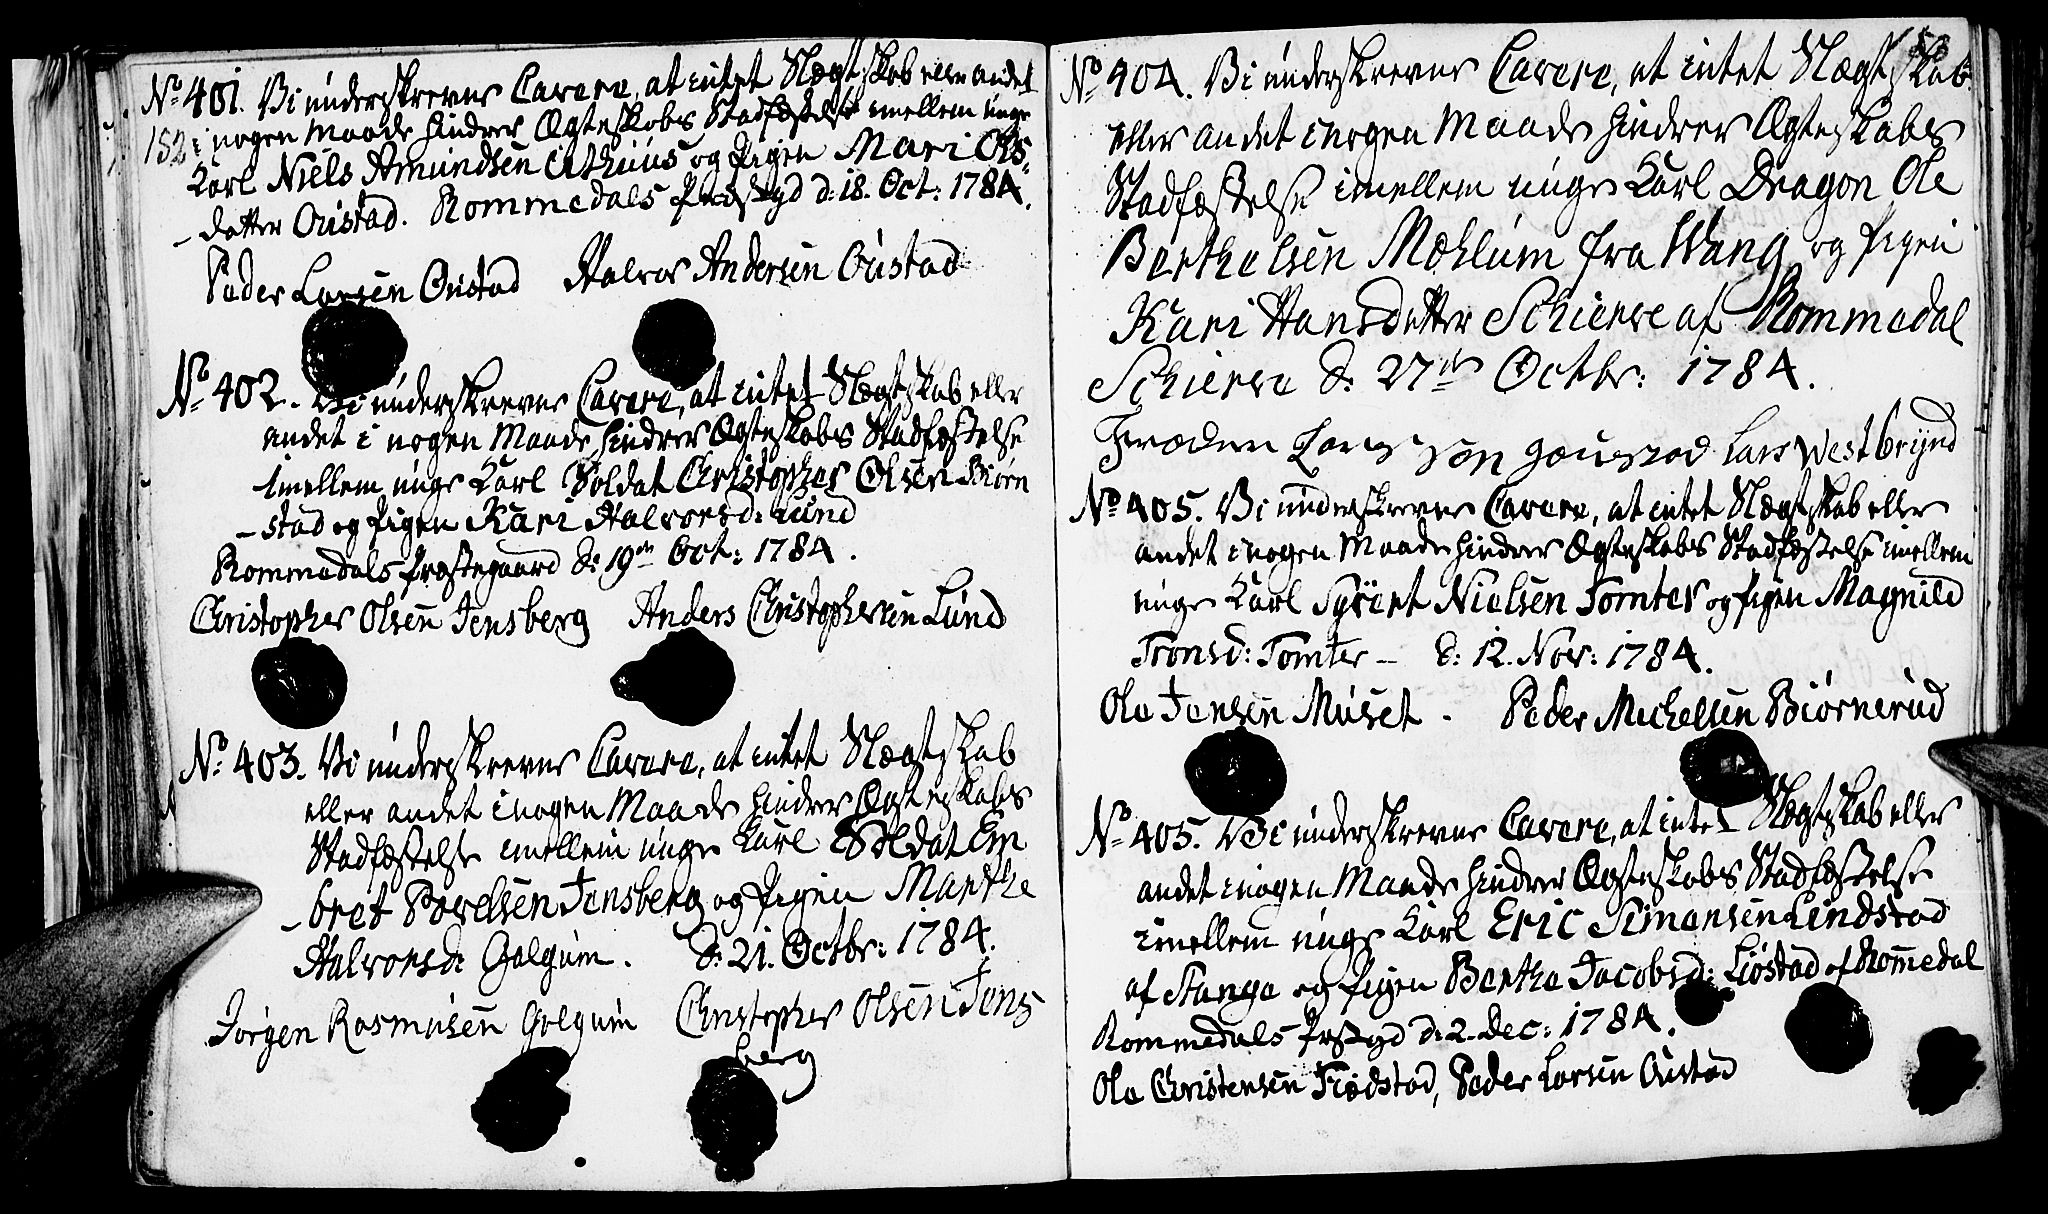 No. 401. Vi underskrevne Cavere, at intet Slægtskab eller andet
152 i nogen Maade hindrer Ægteskabs Stadfæstelse imellem unge
Karl Niels Amundsen Athuus og Pigen Mari Ols-
-datter Oustad. Rommedals Præstgd d: 18. Oct: 1784.
Peder Larsen Oustad Halvor Andersen Oustad
No. 402. Vi underskrevne Cavere, at intet Slægtskab eller
andet i nogen Maade hindrer Ægteskabs Stadfæstelse
imellem unge Karl Soldat Christopher Olsen Biørn
-stad og Pigen Kari Halvorsd: Lund
Rommedals Præstegaard d: 19de Oct: 1784.
Christopher Olsen Jensberg Anders Christophersen Lund
No. 403. Vi underskrevne Cavere, at intet Slægtskab
eller andet i nogen Maade hindrer Ægteskabs
Stadfæstelse imellem unge Karl Soldat Em
-bret Povelsen Jensberg og Pigen Marthe
Halvorsd: Galgum. d: 21. Octbr: 1784.
Jørgen Rasmusen Galgum Christopher Olsen Jens
berg
153
No. 404. Vi underskrevne Cavere, at intet Slægtskab
eller andet i nogen Maade hindrer Ægteskabs
Stadfæstelse imellem unge Karl Dragon Ole
Berthelsen Mæhlum fra Wang og Pigen
Kari Hansdatter Schierve af Rommedal
Schierve d: 27de Octbr: 1784.
Lars Westbrynd
No. 405. Vi underskrevne Cavere, at intet Slægtskab eller
andet i nogen Maade hindrer Ægteskabs Stadfæstelse imellem
unge Karl Syvert Nielsen Tomter og Pigen Magnild
Tronsd: Tomter - d: 12. Nov: 1784.
Ole Jensen Muset. Peder Michelsen Biørnerud
No. 405. Vi underskrevne Cavere, at intet Slægtskab eller
andet i nogen Maade hindrer Ægteskabs Stadfæstelse
imellem unge Karl Eric Simensen Lindstad
af Stange og Pigen Berthe Jacobsd: Liøstad af Romedal
Rommedals Præstgd d: 2. Dec: 1784.
Ole Christensen Fiødstad, Peder Larsen Oustad